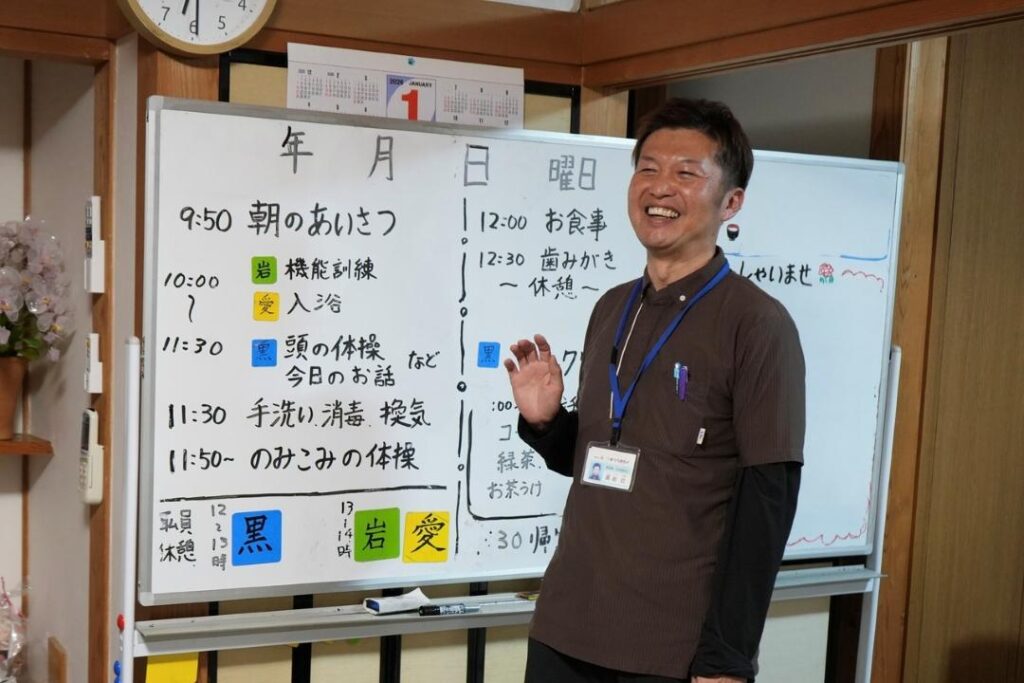 7 6 5 4
2026 JANUARY
1
年 月 日 曜日
9:50 朝のあいさつ
10:00
〜
11:30
岩 機能訓練
愛 入浴
黒 頭の体操 など
今日のお話
11:30 手洗い、消毒、換気
11:50~ のみこみの体操
休憩
12
〜
13
時
黒
13
〜
14
時
岩 愛
12:00 お食事
12:30 歯みがき
〜休憩〜
黒
:00
コ
緑茶
お茶うけ
30 帰
しゃいませ